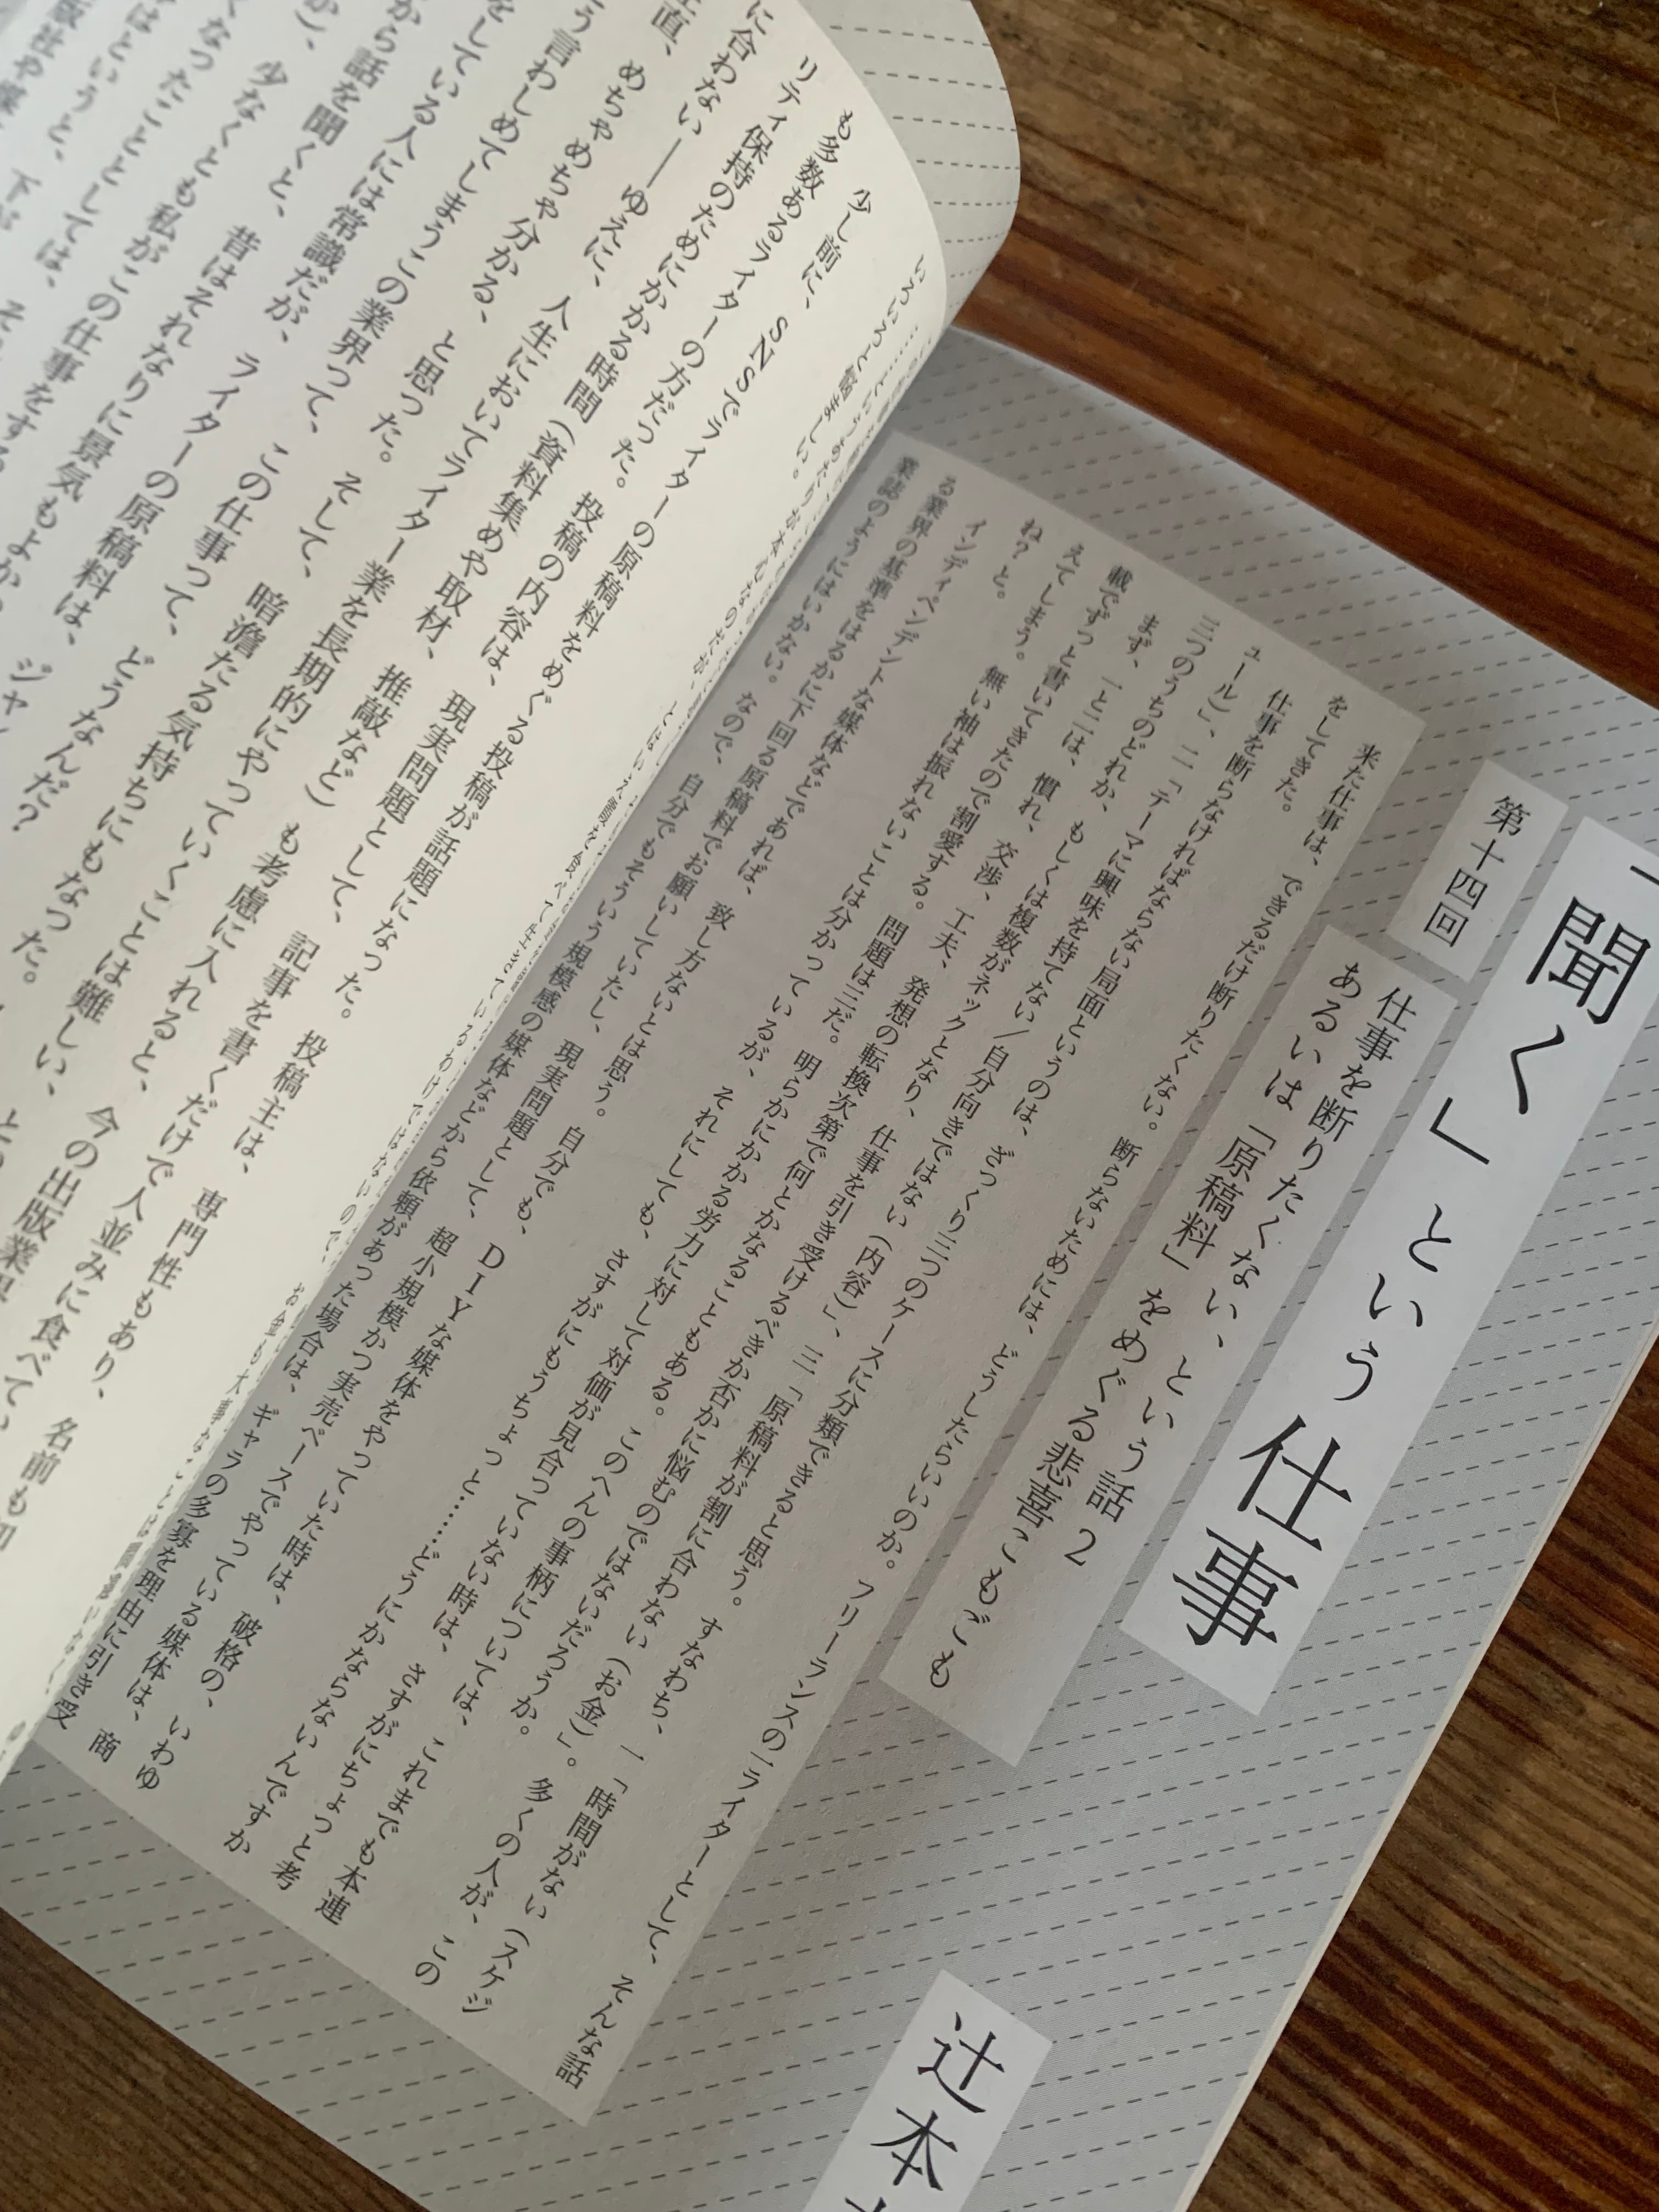 「聞く」という仕事
第十四回
仕事を断りたくない、という話 2
あるいは「原稿料」をめぐる悲喜こもごも
辻本
来た仕事は、できるだけ断りたくない。断らないためには、どうしたらいいのか。フリーランスの一ライターとして、そんな話
をしてきた。
仕事を断らなければならない局面というのは、ざっくり三つのケースに分類できると思う。すなわち、一「時間がない(スケジ
ュール)」、二「テーマに興味を持てない/自分向きではない(内容)」、三「原稿料が割に合わない(お金)」。多くの人が、この
三つのうちのどれか、もしくは複数がネックとなり、仕事を引き受けるべきか否かに悩むのではないだろうか。
まず、一と二は、慣れ、交渉、工夫、発想の転換次第で何とかなることもある。このへんの事柄については、これまでも本連
載でずっと書いてきたので割愛する。問題は三だ。明らかにかかる労力に対して対価が見合っていない時は、さすがにちょっと考
えてしまう。無い袖は振れないことは分かっているが、それにしても、さすがにもうちょっと……どうにかならないんですか
ね?と。
インディペンデントな媒体などであれば、致し方ないとは思う。自分でも、DIYな媒体をやっていた時は、破格の、いわゆ
る業界の基準をはるかに下回る原稿料でお願いしていたし、現実問題として、超小規模かつ実売ベースでやっている媒体は、商
業誌のようにはいかない。なので、自分でもそういう規模感の媒体などから依頼があった場合は、ギャラの多寡を理由に引き受
とはいえ霞を食べて生きているわけではないので、お金も大事な
いろいろと悩ましい。
少し前に、SNSでライターの原稿料をめぐる投稿が話題になった。投稿主は、専門性もあり、名前も
も多数あるライターの方だった。投稿の内容は、現実問題として、記事を書くだけで人並みに食べてい
リティ保持のためにかかる時間(資料集めや取材、推敲など)も考慮に入れると、今の出版業界
に合わない――ゆえに、人生においてライター業を長期的にやっていくことは難しい、と
正直、めちゃめちゃ分かる、と思った。そして、暗澹たる気持ちにもなった。
う言わしめてしまうこの業界って、この仕事って、どうなんだ?
をしている人には常識だが、ライターの原稿料は、ジャ
から話を聞くと、昔はそれなりに景気もよか
か)、少なくとも私がこの仕事をする
なったこととしては、
はというと、下が